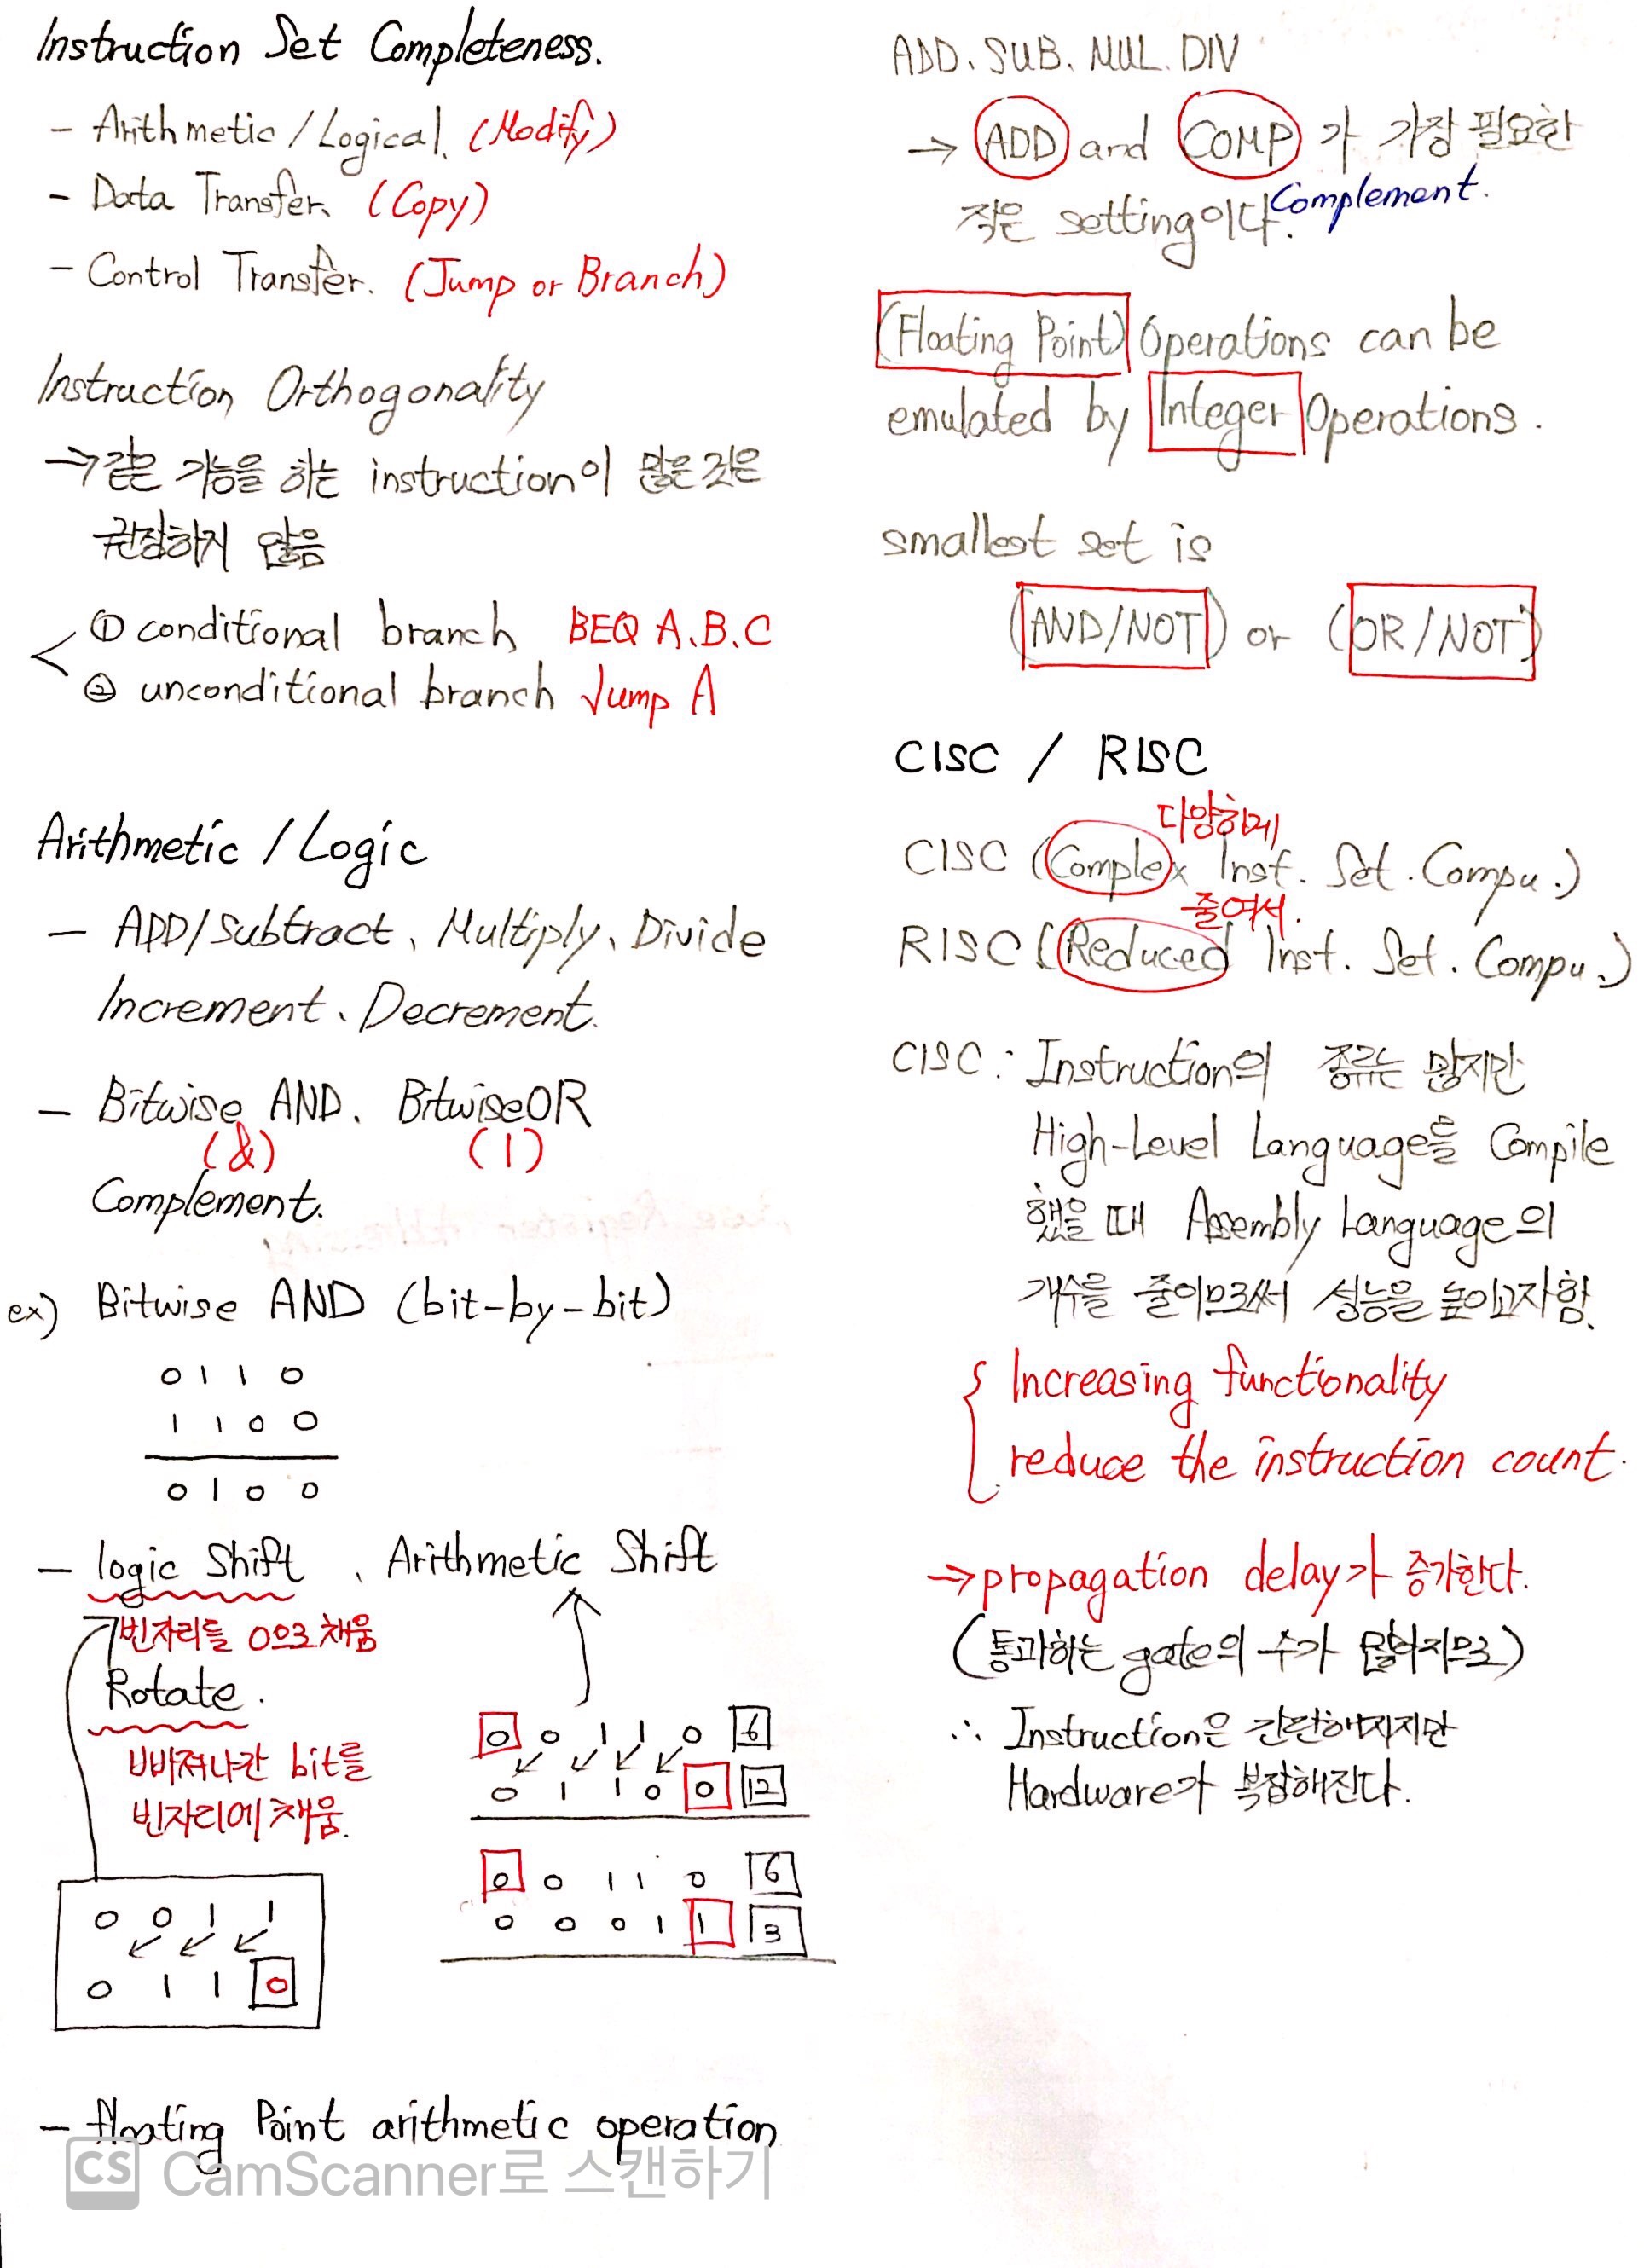 Instruction Set Completeness.
- Arithmetic / Logical. (Modify)
- Data Transfer. (Copy)
- Control Transfer. (Jump or Branch)
Instruction Orthogonality
→ 같은 기능을 하는 instruction이 많은 것은
권장하지 않음
① conditional branch BEQ A.B.C
② unconditional branch Jump A
Arithmetic / Logic
- ADD/Subtract、Multiply、Divide
Increment、Decrement.
- Bitwise AND、BitwiseOR
(&) (|)
Complement.
ex) Bitwise AND (bit-by-bit)
0 1 1 0
1 1 0 0
0 1 0 0
- logic Shift 、Arithmetic Shift
빈자리를 0으로 채움
Rotate.
빠져나간 bit를
빈자리에 채움.
0 0 1 1 0 6
0 1 1 0 0 12
0 0 1 1 0 6
0 0 0 1 1 3
0 0 1 1
0 1 1 0
- floating Point arithmetic operation
ADD. SUB. MUL. DIV
→ ADD and COMP가 가장 필요한
적은 setting이다. Complement.
(Floating Point) Operations can be
emulated by Integer Operations.
smallest set is
(AND/NOT) or (OR/NOT)
CISC / RISC
다양하게
CISC (Complex Inst. Set. Compu.)
줄여서.
RISC (Reduced Inst. Set. Compu.)
CISC : Instruction의 종류는 많지만
High-Level Language를 Compile
했을 때 Assembly Language의
개수를 줄이므로써 성능을 높이고자함.
Increasing functionality
reduce the instruction count.
→ propagation delay가 증가한다.
(통과하는 gate의 수가 많아지므로)
∴ Instruction은 간편해지지만
Hardware가 복잡해진다.
CS CamScanner로 스캔하기